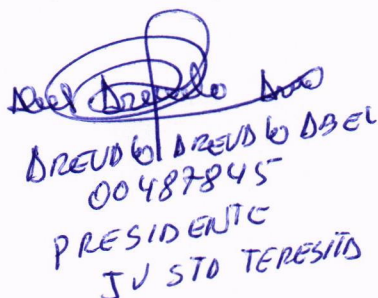 Abel Arevalo
AREVALO AREVALO ABEL
00487845
PRESIDENTE
JUSTO TERESITA